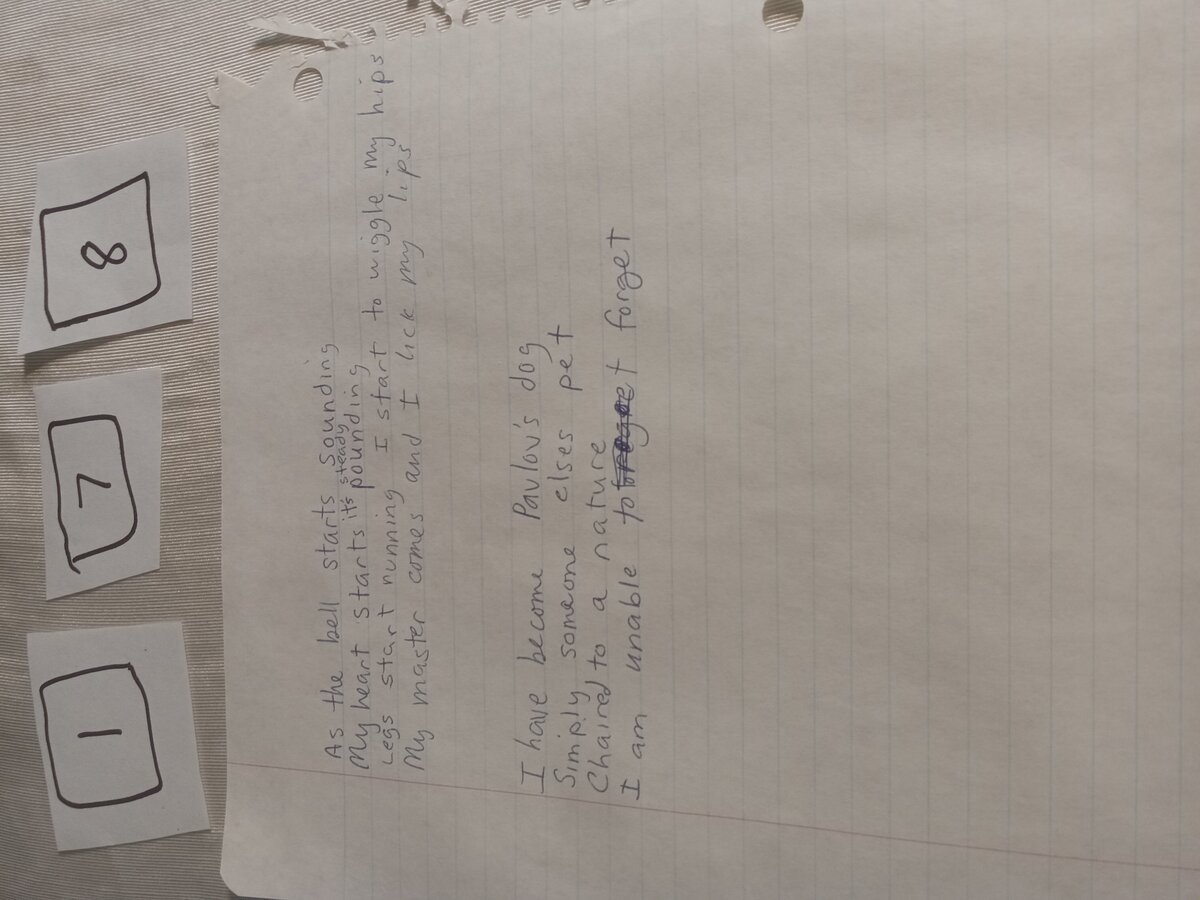 1 7 8
As the bell starts sounding
My heart starts it's steady pounding
Legs start running I start to wiggle my hips
My master comes and I lick my lips
I have become Pavlov's dog
Simply someone elses pet
Chaired to a nature
I am unable to forget